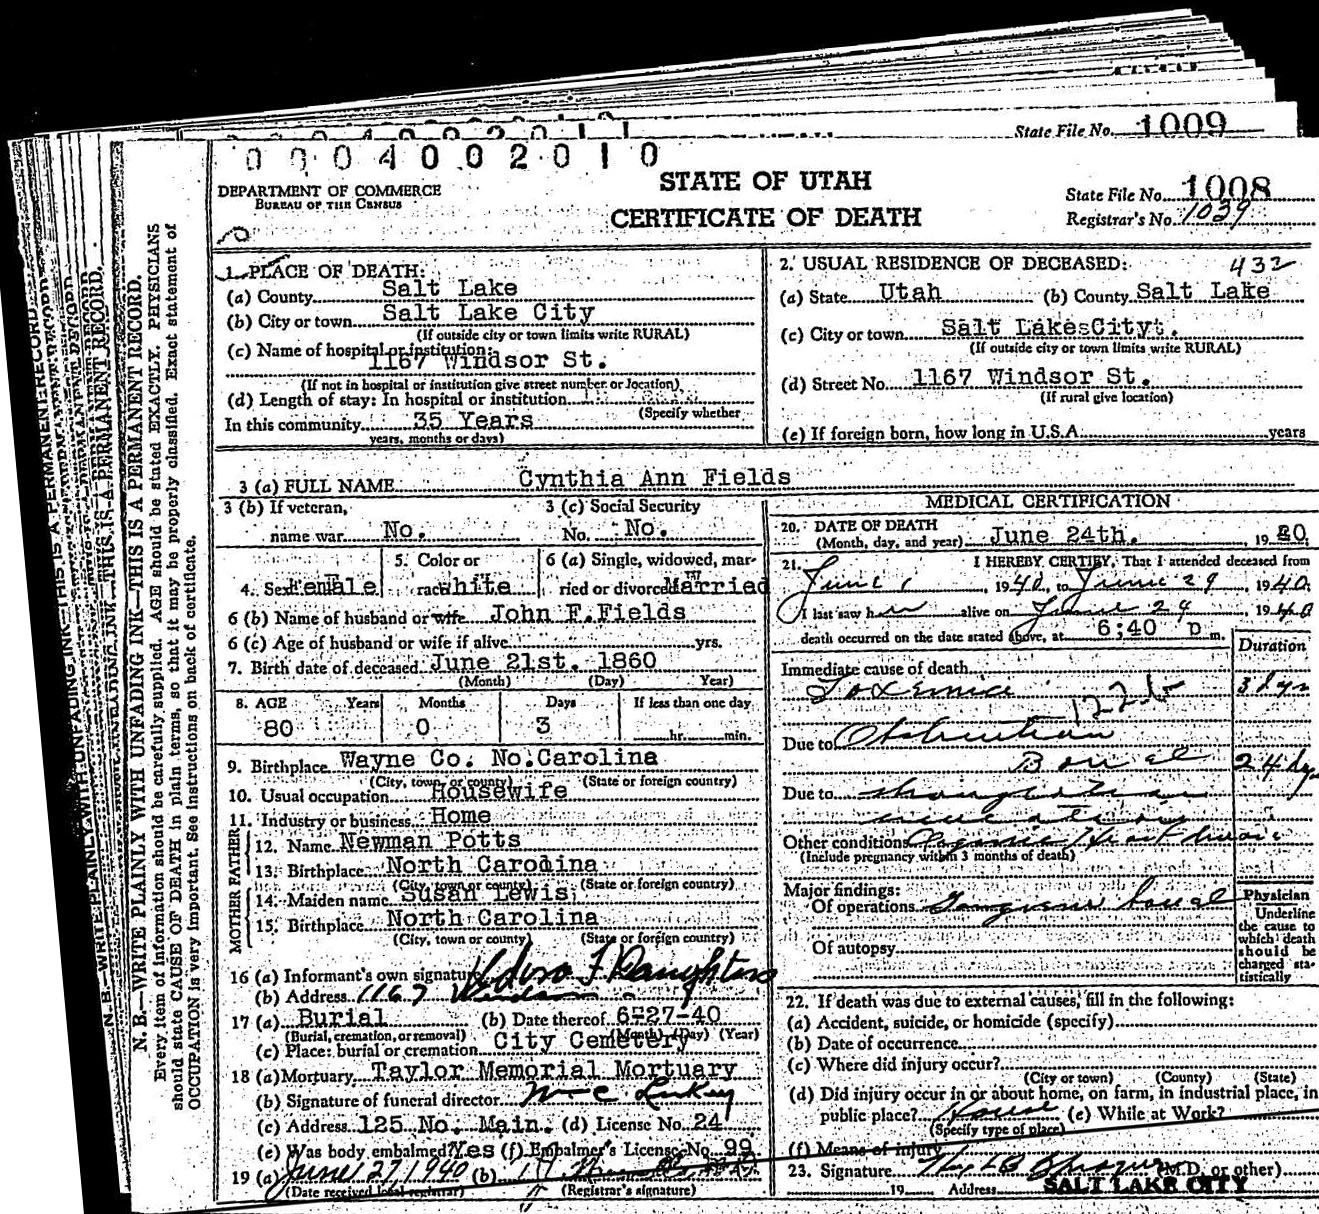 State File No. 1009
0 0 0 4 0 0 2 0 1 0
DEPARTMENT OF COMMERCE
BUREAU OF THE CENSUS
STATE OF UTAH
CERTIFICATE OF DEATH
State File No. 1008
Registrar's No. 1039
N. B.—WRITE PLAINLY WITH UNFADING INK—THIS IS A PERMANENT RECORD.
Every item of information should be carefully supplied. AGE should be stated EXACTLY. PHYSICIANS
should state CAUSE OF DEATH in plain terms, so that it may be properly classified. Exact statement of
OCCUPATION is very important. See instructions on back of certificate.
1. PLACE OF DEATH:
(a) County Salt Lake
(b) City or town Salt Lake City
(If outside city or town limits write RURAL)
(c) Name of hospital or institution:
1167 Windsor St.
(If not in hospital or institution give street number or location)
(d) Length of stay: In hospital or institution
(Specify whether
In this community 35 Years
years, months or days)
2. USUAL RESIDENCE OF DECEASED: 432
(a) State Utah (b) County Salt Lake
(c) City or town Salt Lake City.
(If outside city or town limits write RURAL)
(d) Street No. 1167 Windsor St.
(If rural give location)
(e) If foreign born, how long in U.S.A. years
3 (a) FULL NAME Cynthia Ann Fields
3 (b) If veteran, 3 (c) Social Security
name war No. No. No.
4. Sex Female 5. Color or race White 6 (a) Single, widowed, married or divorced Married
6 (b) Name of husband or wife John F. Fields
6 (c) Age of husband or wife if alive yrs.
7. Birth date of deceased June 21st. 1860
(Month) (Day) Year)
8. AGE Years Months Days If less than one day
80 0 3 hr. min.
9. Birthplace Wayne Co. No. Carolina
(City, town, or county) (State or foreign country)
10. Usual occupation Housewife
11. Industry or business Home
FATHER
12. Name Newman Potts
13. Birthplace North Carolina
(City, town or county) (State or foreign country)
MOTHER
14. Maiden name Susan Lewis
15. Birthplace North Carolina
(City, town or county) (State or foreign country)
16 (a) Informant's own signature
(b) Address 1167 Windsor
17 (a) Burial (b) Date thereof 6-27-40
(Burial, cremation, or removal) (Month) (Day) (Year)
(c) Place: burial or cremation City Cemetery
18 (a) Mortuary Taylor Memorial Mortuary
(b) Signature of funeral director
(c) Address 125 No. Main. (d) License No. 24
(e) Was body embalmed? Yes (f) Embalmer's License No. 99
19 (a) June 27, 1940 (b)
(Date received local registrar) (Registrar's signature)
MEDICAL CERTIFICATION
20. DATE OF DEATH
(Month, day, and year) June 24th. 19 40
21. I HEREBY CERTIFY, That I attended deceased from
June 1, 1940, to June 24, 1940,
I last saw her alive on June 24, 1940
death occurred on the date stated above, at 6:40 p m.
Duration
Immediate cause of death
Toxemia 3 dys
122b
Due to Obstruction
Bowel 24 dys
Due to
Other conditions Organic Heart disease
(Include pregnancy within 3 months of death)
Major findings:
Of operations Gangrene bowel
Of autopsy
Physician
Underline
the cause to
which death
should be
charged sta-
tistically
22. If death was due to external causes, fill in the following:
(a) Accident, suicide, or homicide (specify)
(b) Date of occurrence
(c) Where did injury occur?
(City or town) (County) (State)
(d) Did injury occur in or about home, on farm, in industrial place, in
public place? (e) While at Work?
(Specify type of place)
(f) Means of injury
23. Signature (M.D. or other)
19 Address SALT LAKE CITY